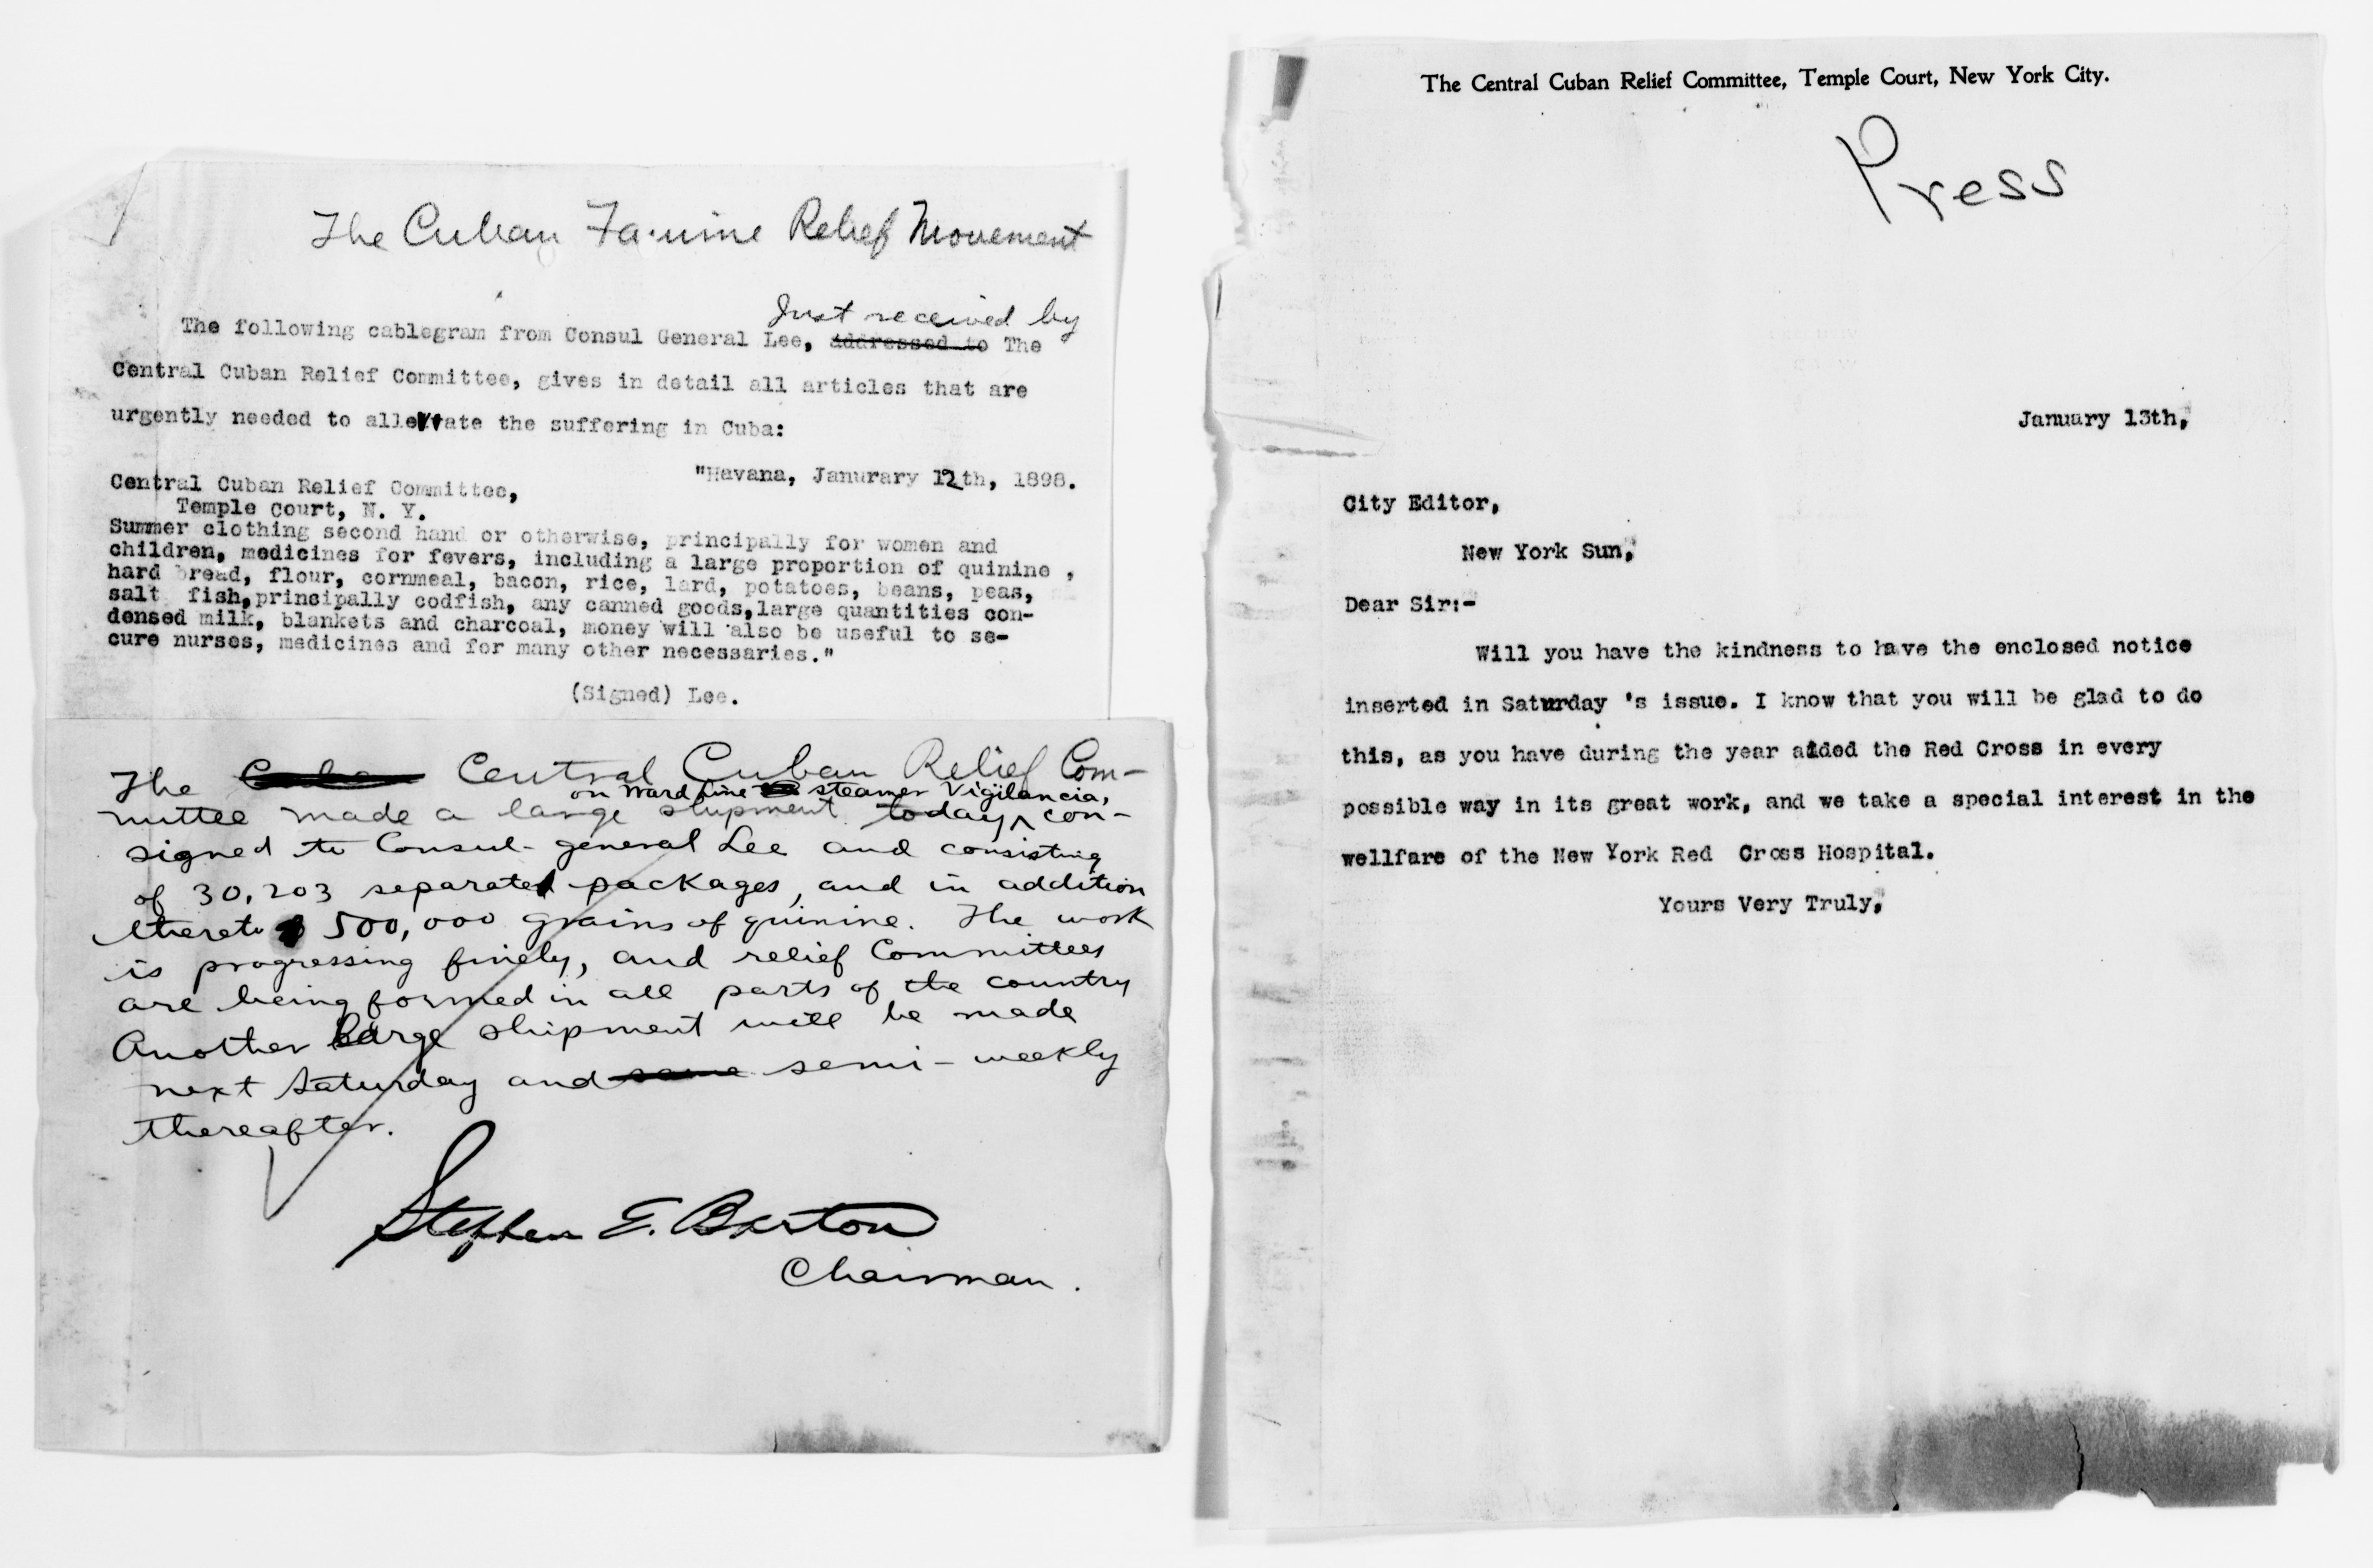 The Cuban Famine Relief Movement
Just received by
The following cablegram from Consul General Lee, addressed to The
Central Cuban Relief Committee, gives in detail all articles that are
urgently needed to allevate the suffering in Cuba:
"Havana, Janurary 12th, 1898.
Central Cuban Relief Committee,
Temple Court, N. Y.
Summer clothing second hand or otherwise, principally for women and
children, medicines for fevers, including a large proportion of quinine ,
hard bread, flour, cornmeal, bacon, rice, lard, potatoes, beans, peas,
salt fish,principally codfish, any canned goods,large quantities con-
densed milk, blankets and charcoal, money will also be useful to se-
cure nurses, medicines and for many other necessaries."
(Signed) Lee.
The Cuban Central Cuban Relief Com-
on Ward Line steamer Vigilancia,
mittee made a large shipment today con-
signed to Consul-general Lee and consisting
of 30,203 separate packages, and in addition
thereto 500,000 grains of quinine. The work
is progressing finely, and relief Committees
are being formed in all parts of the country
Another large shipment will be made
next Saturday and same semi-weekly
thereafter.
Stephen E. Barton
Chairman.
The Central Cuban Relief Committee, Temple Court, New York City.
Press
January 13th,
City Editor,
New York Sun,
Dear Sir:-
Will you have the kindness to have the enclosed notice
inserted in Saturday 's issue. I know that you will be glad to do
this, as you have during the year aided the Red Cross in every
possible way in its great work, and we take a special interest in the
wellfare of the New York Red Cross Hospital.
Yours Very Truly,